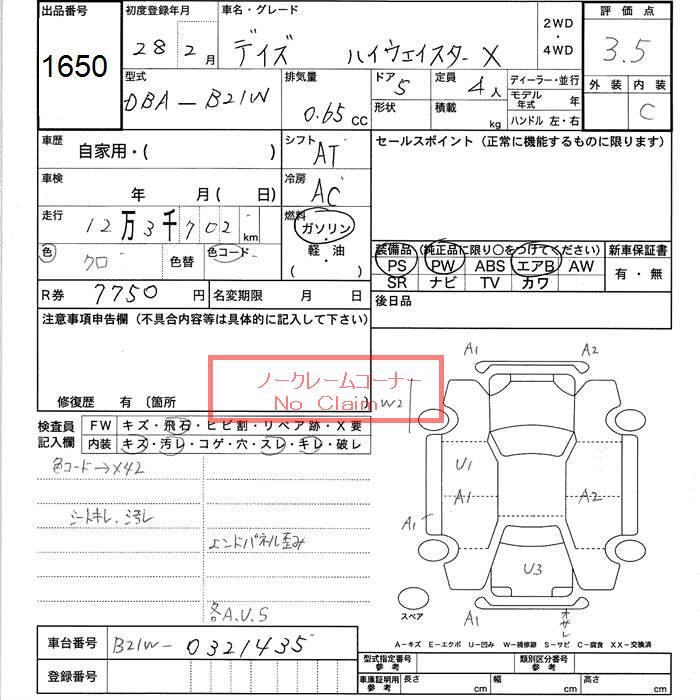 出品番号 初度登録年月 車名・グレード 2WD・4WD 評価点
1650 28年2月 デイズ ハイウェイスター X 3.5
型式 排気量 ドア 5 定員 4人 ディーラー・並行 外装 内装
DBA-B21W 0.65 CC 形状 積載 kg モデル年式 年 C
ハンドル 左・右
車歴 自家用・( ) シフト AT セールスポイント (正常に機能するものに限ります)
車検 年 月 ( 日) 冷房 AC
走行 12万3千702 km 燃料 ガソリン・軽・油 ( )
色 クロ 色替 色コード
装備品 (純正品に限り○をつけてください) 新車保証書
PS PW ABS エアB AW 有・無
SR ナビ TV カワ
R券 7750円 名変期限 月 日 後日品
注意事項申告欄 (不具合内容等は具体的に記入して下さい)
ノークレームコーナー
No Claim
修復歴 有 〔箇所 〕
検査員記入欄 FW キズ・飛石・ヒビ割・リペア跡・X要
内装 キズ・汚レ・コゲ・穴・スレ・キレ・破レ
色コード→X42
シートキレ、汚レ
エンドパネル歪み
各A.U.S
A1 A2
W2
U1
A1 A2
A1
U3
A1 オサレ
スペア
A-キズ E-エクボ U-凹み W-補修跡 S-サビ C-腐食 XX-交換済
車台番号 B21W-0321435
登録番号
型式指定番号 参考 類別区分番号 参考
車庫証明用 参考 長さ cm 幅 cm 高さ cm